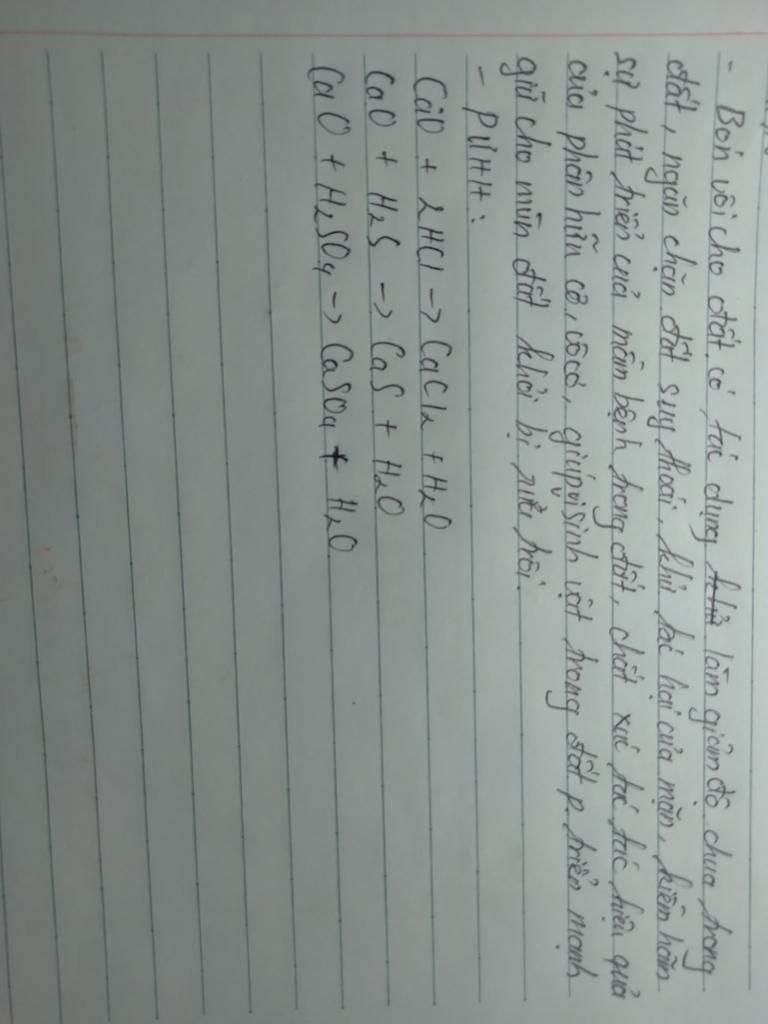 - Bón vôi cho đất có tác dụng làm giảm độ chua trong
đất, ngăn chặn đất suy thoái, khử tác hại của mặn, kiềm hãm
sự phát triển của mầm bệnh trong đất, chất xúc tác tác hiệu quả
của phân hữu cơ, vô cơ, giúp vi sinh vật trong đất p. triển mạnh
giữ cho mùn đất khỏi bị rửa trôi.
- PTHH:
CaO + 2HCl -> CaCl2 + H2O
CaO + H2S -> CaS + H2O
CaO + H2SO4 -> CaSO4 + H2O